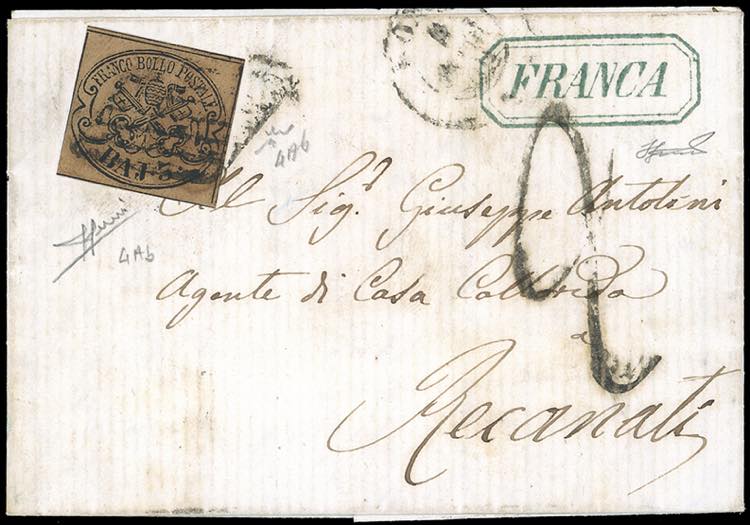 FRANCO BOLLO POSTALE
BAJ 3
FRANCA
4Ab
4Ab
2
Al Sig.r Giuseppe Antolini
Agente di Casa Colloredo
a
Recanati